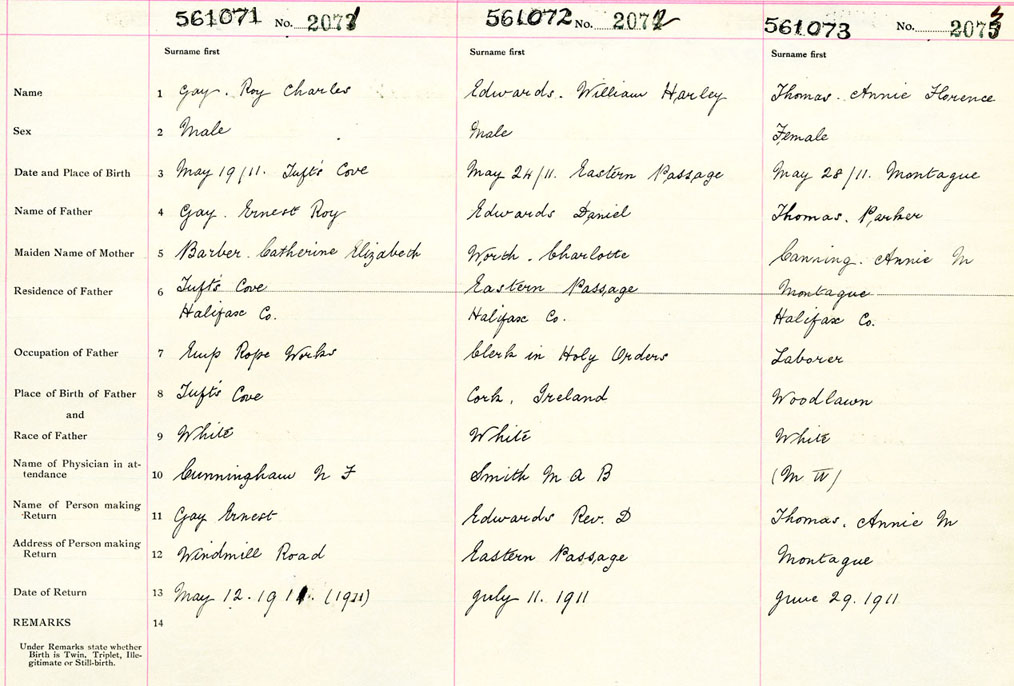 561071 No. 2071 561072 No. 2072 561073 No. 2073
Surname first Surname first Surname first
Name 1 Gay. Roy Charles Edwards. William Harley Thomas. Annie Florence
Sex 2 Male Male Female
Date and Place of Birth 3 May 19/11. Tuft's Cove May 24/11. Eastern Passage May 28/11. Montague
Name of Father 4 Gay. Ernest Roy Edwards Daniel Thomas. Parker
Maiden Name of Mother 5 Barber. Catherine Elizabeth Worth. Charlotte Canning. Annie M
Residence of Father 6 Tuft's Cove Eastern Passage Montague
Halifax Co. Halifax Co. Halifax Co.
Occupation of Father 7 Emp Rope Works Clerk in Holy Orders Laborer
Place of Birth of Father 8 Tuft's Cove Cork, Ireland Woodlawn
and
Race of Father 9 White White White
Name of Physician in at-
tendance 10 Cunningham N F Smith M A B (M W)
Name of Person making
Return 11 Gay Ernest Edwards Rev. D Thomas, Annie M
Address of Person making
Return 12 Windmill Road Eastern Passage Montague
Date of Return 13 May 12. 1911. (1921) July 11. 1911 June 29. 1911
REMARKS 14
Under Remarks state whether
Birth is Twin, Triplet, Ille-
gitimate or Still-birth.